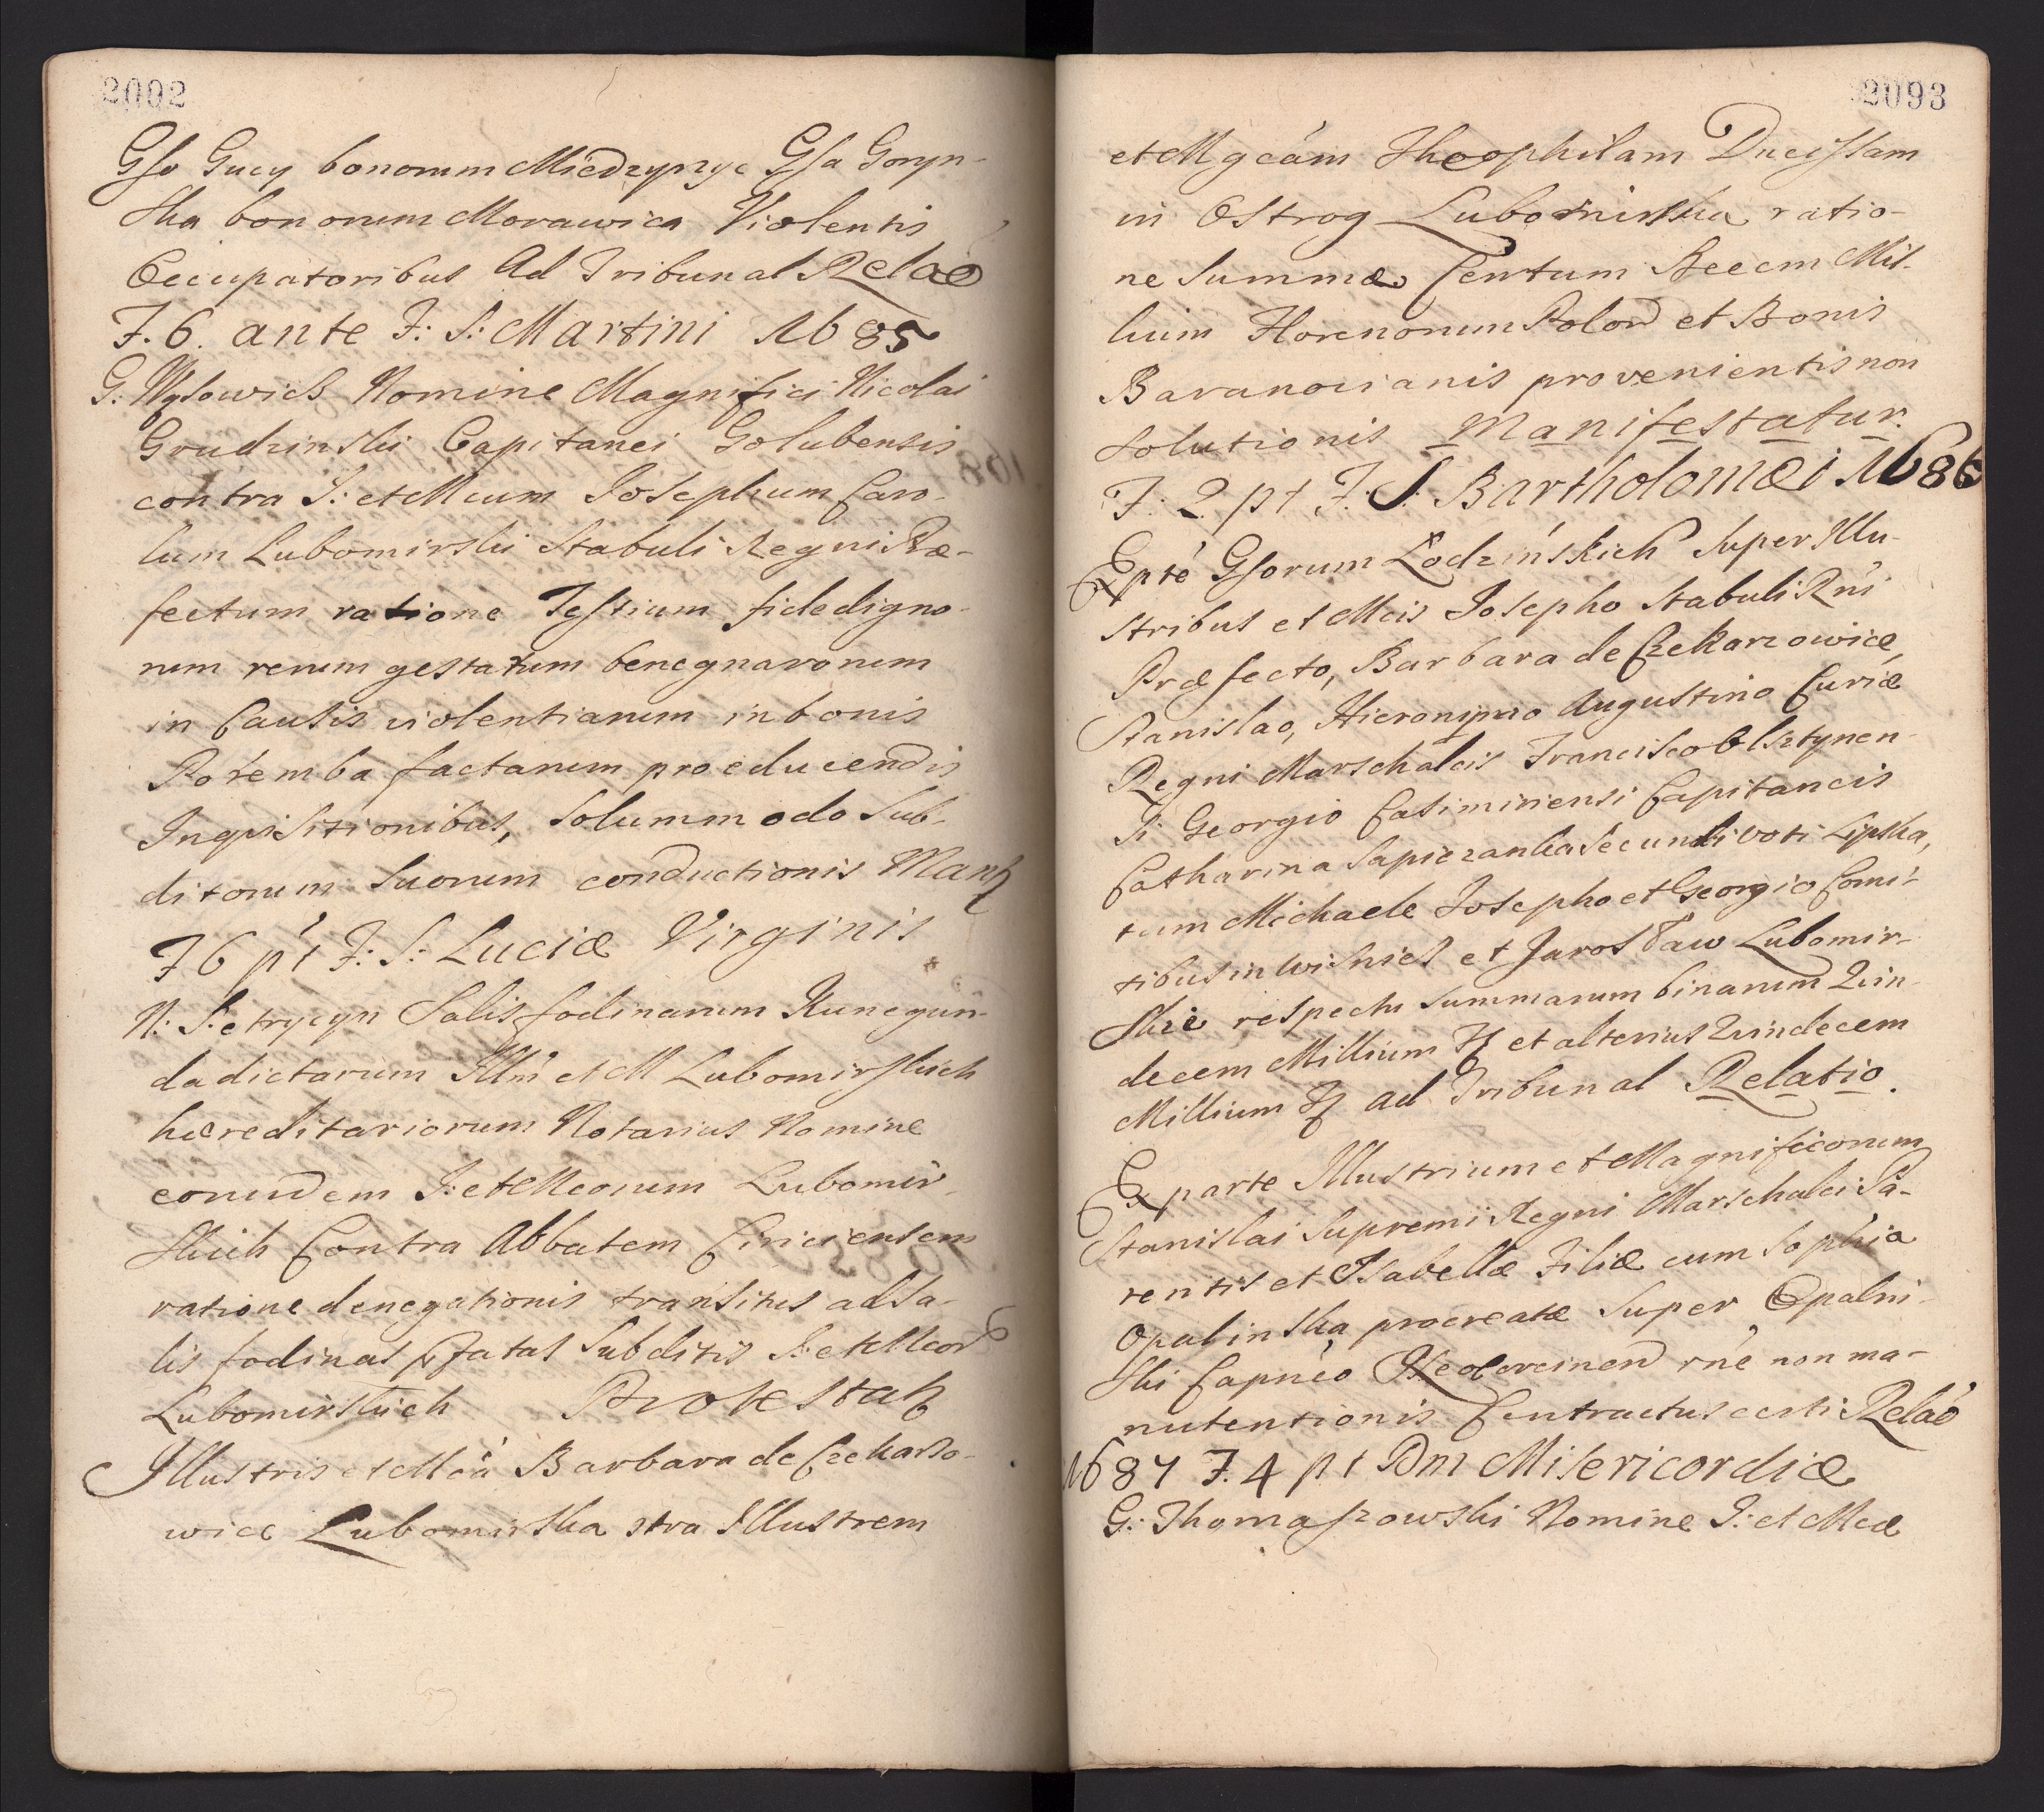 2092
Gso Gucy bonorum Miedzyrzyc Gsa Goryn-
ska bonorum Morawica Violentis
Occupatoribus Ad Tribunal Relaõ
F. 6. ante F: S: Martini 1685
G: Wysowicz Nomine Magnifici Nicolai
Grudzinski Capitanei Golubensis
contra I: et Mcum Josephum Caro-
lum Lubomirski Stabuli Regni Præ-
fectum ratione Testium fidedigno-
rum rerum gestarum benegnarorum
in Causis violentiarum in bonis
Poremba factarum pro educendis
Inquisitionibus, Solummodo Sub-
ditorum Suorum conductionis Manf
F 6 p't F: S: Luciæ Virginis
N: Setrycyn Salis fodinarum Kunegun-
da dictarum Illm' et M Lubomirskich
hæreditariorum Notarius Nomine
eorundem I: et Mcorum Lubomir-
skich Contra Abbatem Ciriciensem
ratione denegationis transitus ad Sa-
lis fodinas pfatas Subditis I: et Mcor
Lubomirskich Protestatz
Illustris et Mcá Barbara de Czekarzo-
wice Lubomirska stra Illustrem
2093
et Mgcám Theophilam Ducissam
in Ostrog Lubomirska ratio-
ne Summæ Centum Decem Mil-
lium Florenorum Polon et Bonis
Baranovianis provenientis non
Solutionis Manifestatur.
F: 2 pt F: S: Bartholomæi 1686
Ex pte Gsorum Lodzińskich Super Illu-
stribus et Mcis Josepho Stabuli Rni
Præfecto, Barbara de Czekarzowice,
Stanislao, Hieronymo Augustino Curiæ
Regni Marschalcis Francisco Olsztynen-
si Georgio Casimiriensi Capitaneis
Catharina Sapiezanka Secundi voti Lipska,
tum Michaele Josepho et Georgio Comi-
tibus in Wisnicz et Jarosław Lubomir-
skie respectu Summarum binarum Quin-
decem Millium ff et alterius Quindecem
Millium ff ad Tribunal Relatio.
Ex parte Illustrium et Magnificorum
Stanislai Supremi Regni Marschalci Pa-
rentis et Isabellæ Filiæ cum Sophia
Opalinska procreatæ Super Opalni-
ski Capneo rne non ma-
nutentionis Contractus certi Relaó
1687 F. 4 pt Dm Misericordiæ
G: Thomaszowski Nomine I: et Mcæ